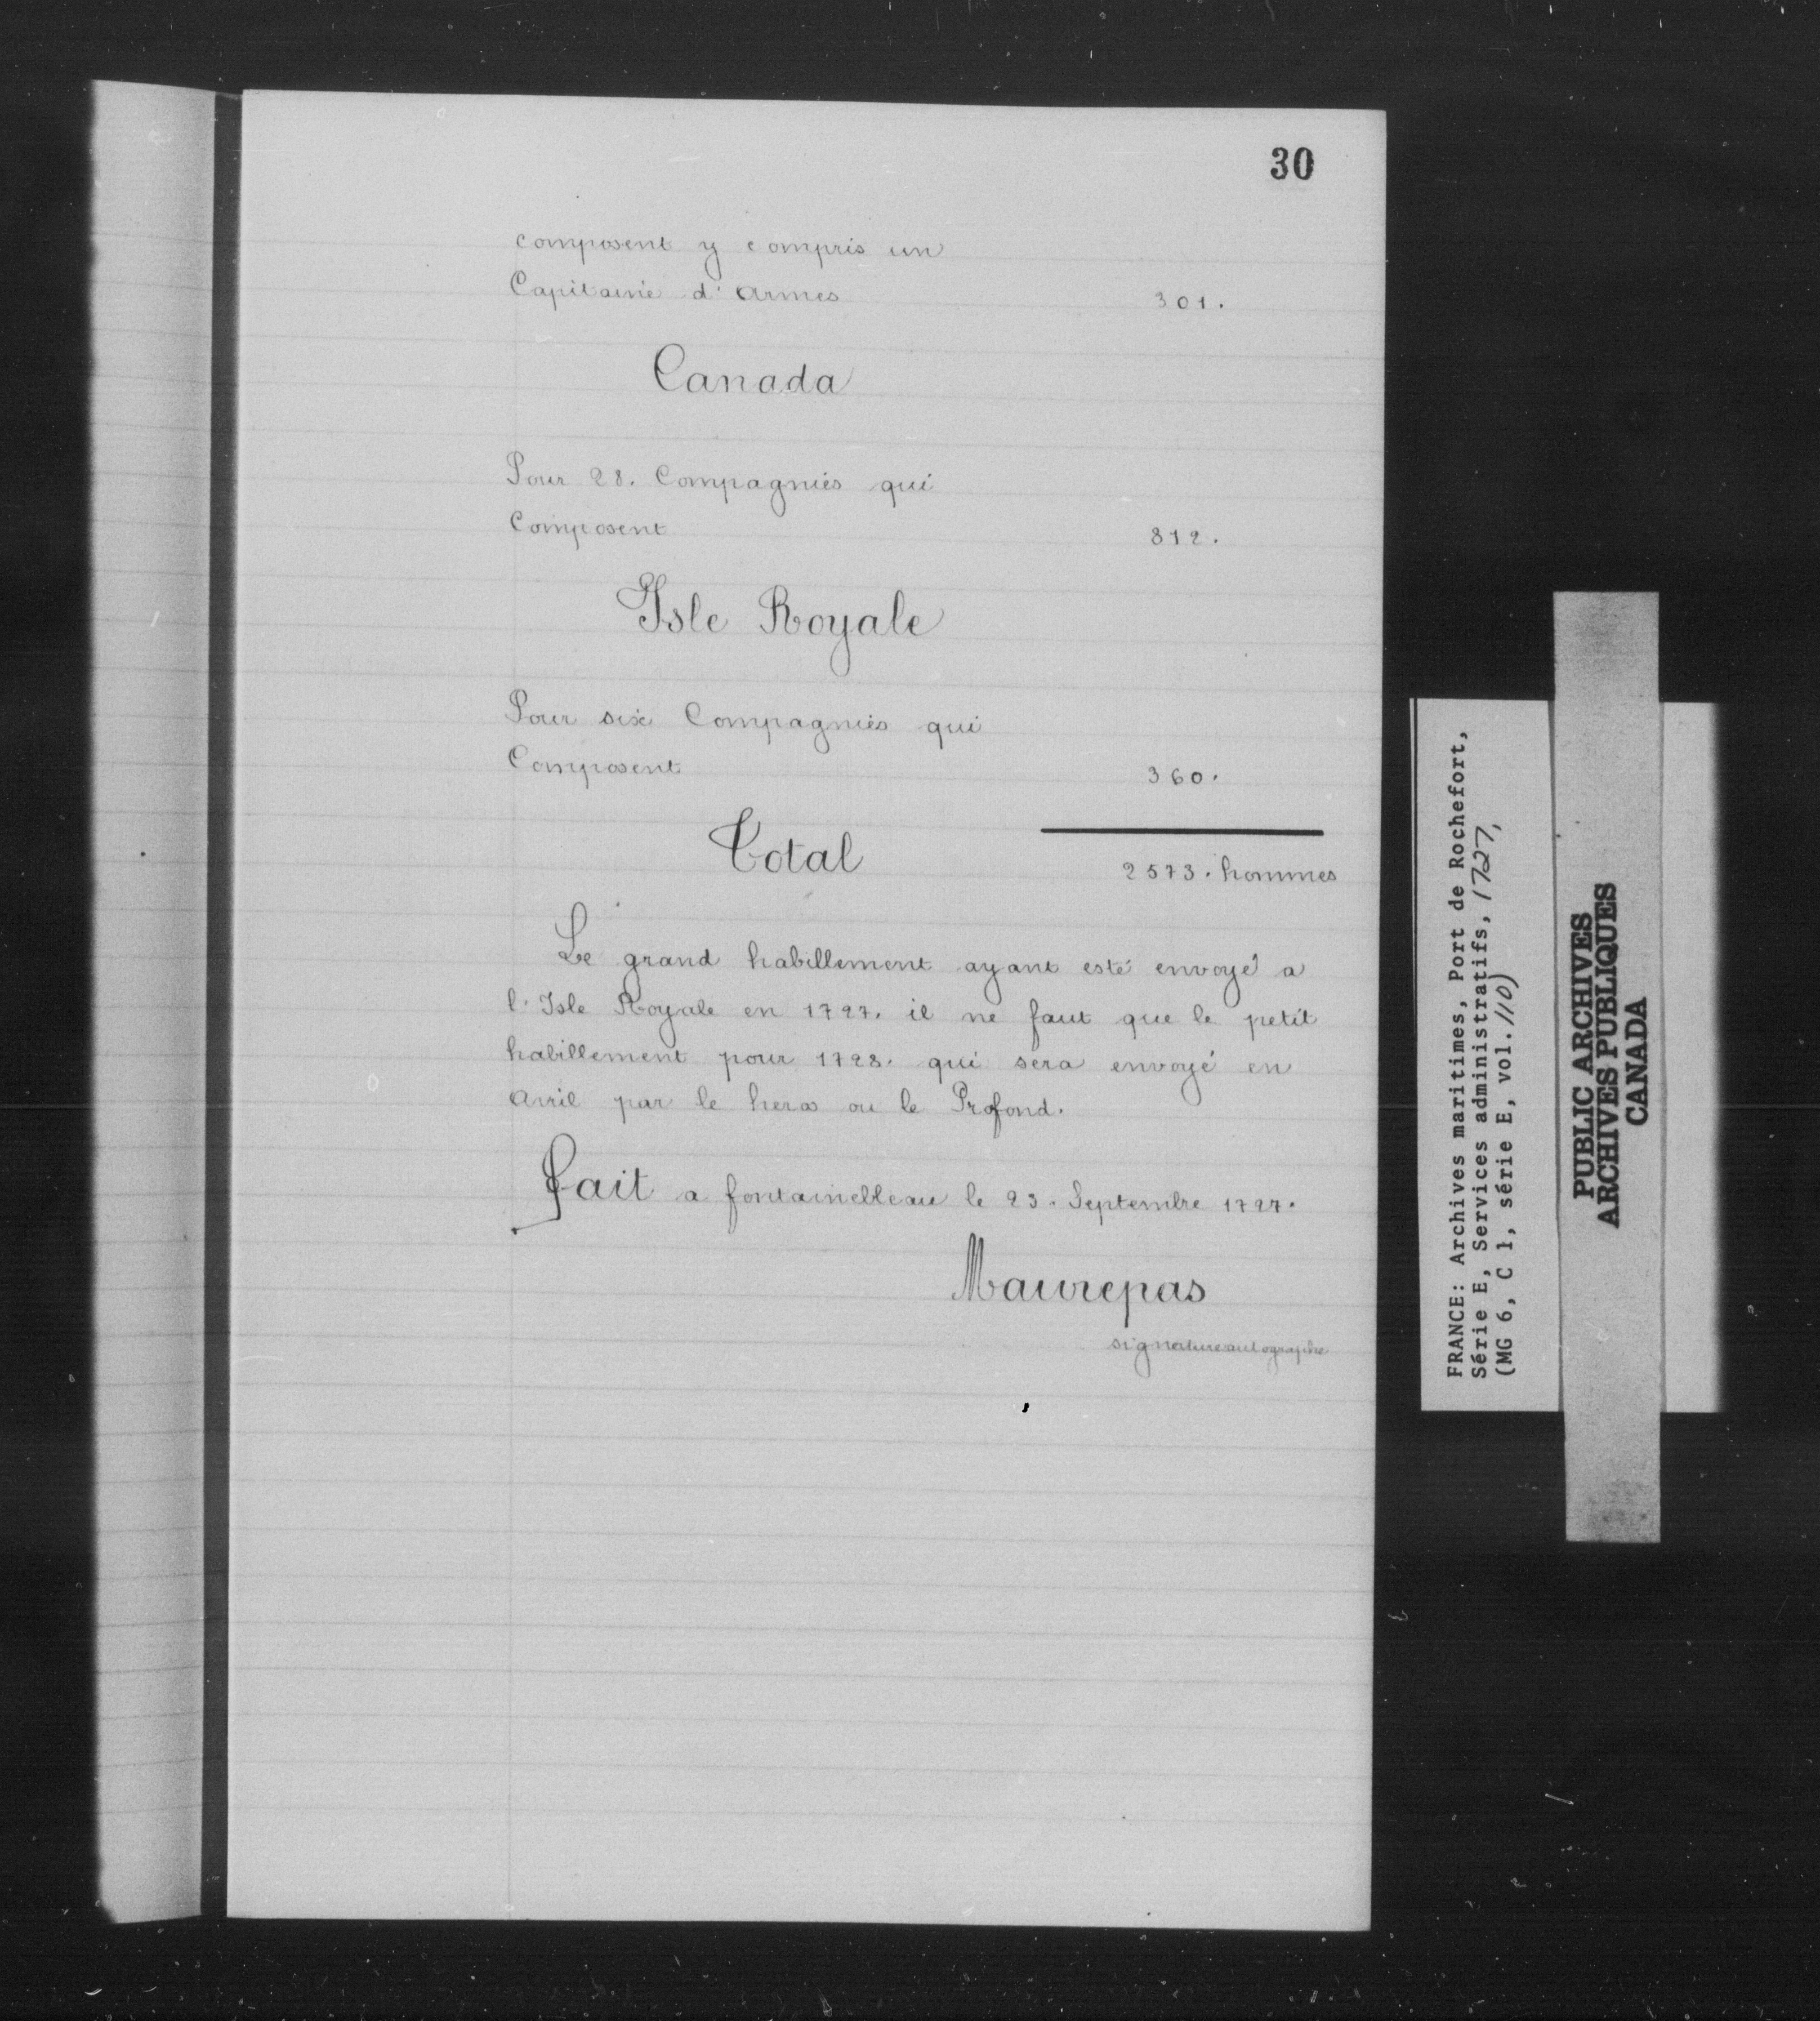 30
composent y compris un
Capitaine d'Armes 301.
Canada
Pour 28. Compagnies qui
Composent 812.
Isle Royale
Pour six Compagnies qui
Composent 360.
Total 2573. hommes
Le grand habillement ayant esté envoyé a
l'Isle Royale en 1727. il ne faut que le petit
habillement pour 1728. qui sera envoyé en
Avril par le heros ou le Profond.
Fait a fontainebleau le 23. Septembre 1727.
Maurepas
signature autographe
FRANCE: Archives maritimes, Port de Rochefort,
Série E, Services administratifs, 1727,
(MG 6, C 1, série E, vol. 110)
PUBLIC ARCHIVES
ARCHIVES PUBLIQUES
CANADA